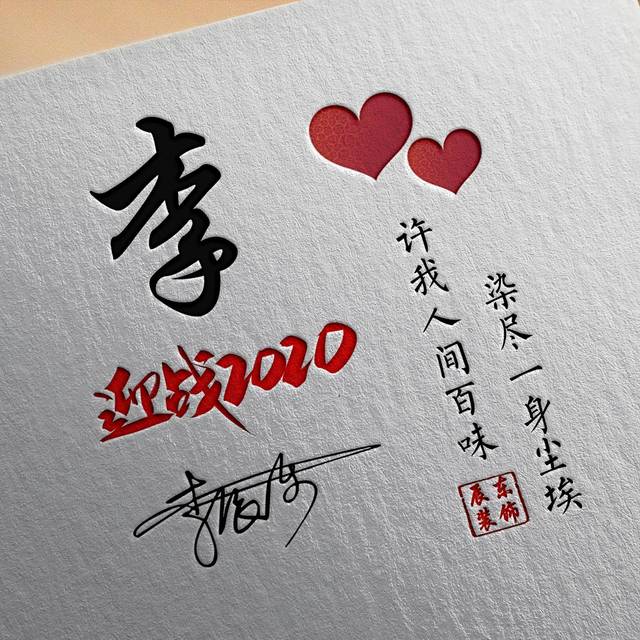 李
迎战2020
染尽一身尘埃
许我人间百味
辰东
装饰